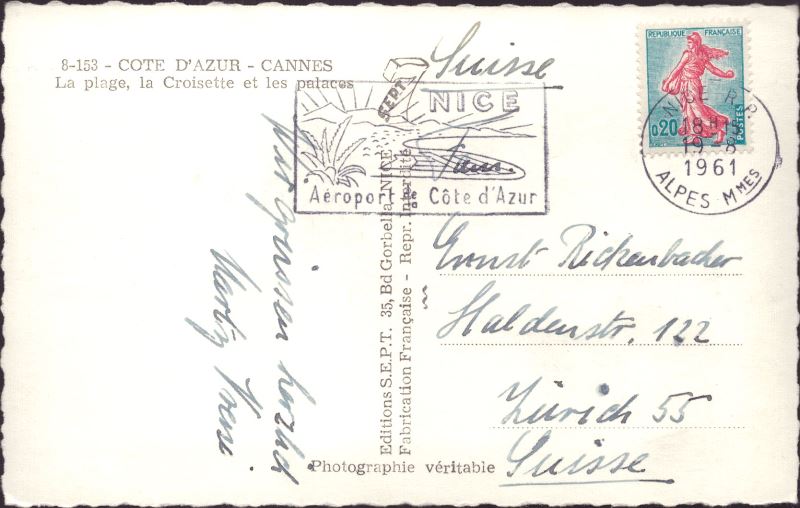 8-153 - COTE D'AZUR - CANNES
La plage, la Croisette et les palaces
Suisse
SEPT
NICE
Aéroport de Côte d'Azur
REPUBLIQUE FRANÇAISE
0,20
POSTES
NICE R.P.
18H
19-8
1961
ALPES MMES
herzlich
Editions S.E.P.T. 35, Bd Gorbella, NICE
Fabrication Française - Repr. Interdite
Ernst Rickenbacher
Haldenstr. 122
Zürich 55
Suisse
Photographie véritable